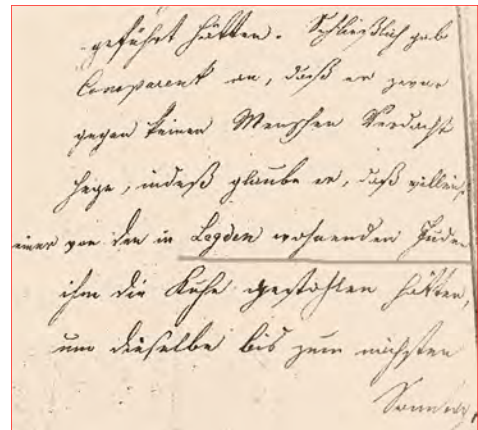 geführt hätten. Schließlich gab
Comparent an, daß er zwar
gegen keinen Menschen Verdacht
hege, indeß glaube er, daß vielleicht
einer von den in Legden wohnenden Juden
ihm die Kuhe gestohlen hätten,
um dieselbe bis zum nächsten
Sonntag,